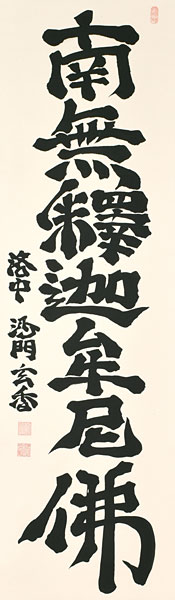 南無釋迦牟尼佛
洛中 沙門玄香